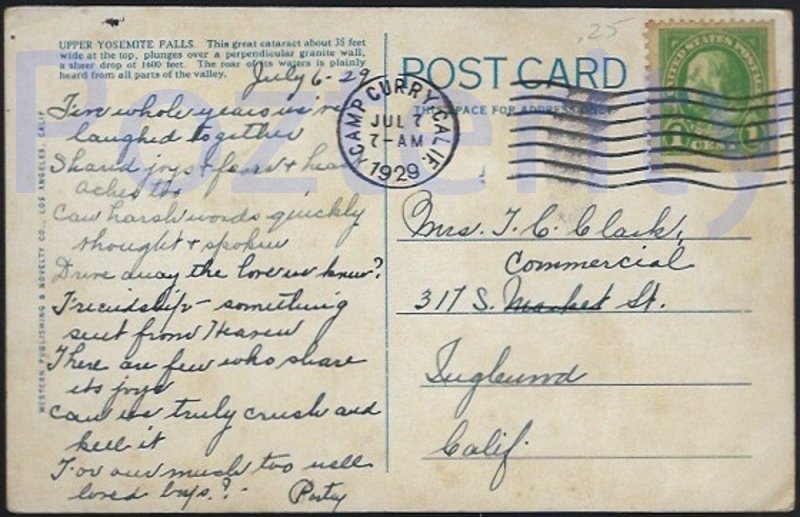 UPPER YOSEMITE FALLS. This great cataract about 35 feet
wide at the top, plunges over a perpendicular granite wall,
a sheer drop of 1600 feet. The roar of its waters is plainly
heard from all parts of the valley.
July 6-29
Five whole years we've
laughed together
Shared joys & fears & heart
aches too
Can harsh words quickly
thought & spoken
Drive away the love we knew?
Friendship - something
sent from Heaven
There are few who share
its joys
Can we truly crush and
kill it
For our much too well
loved boys?
WESTERN PUBLISHING & NOVELTY CO., LOS ANGELES, CALIF.
POST CARD
THIS SPACE FOR ADDRESS ONLY
CAMP CURRY, CALIF.
JUL 7
7-AM
1929
.25
UNITED STATES POSTAGE
1 CENT 1
Mrs. T. C. Clark,
Commercial
317 S. Market St.
Inglewood
Calif.